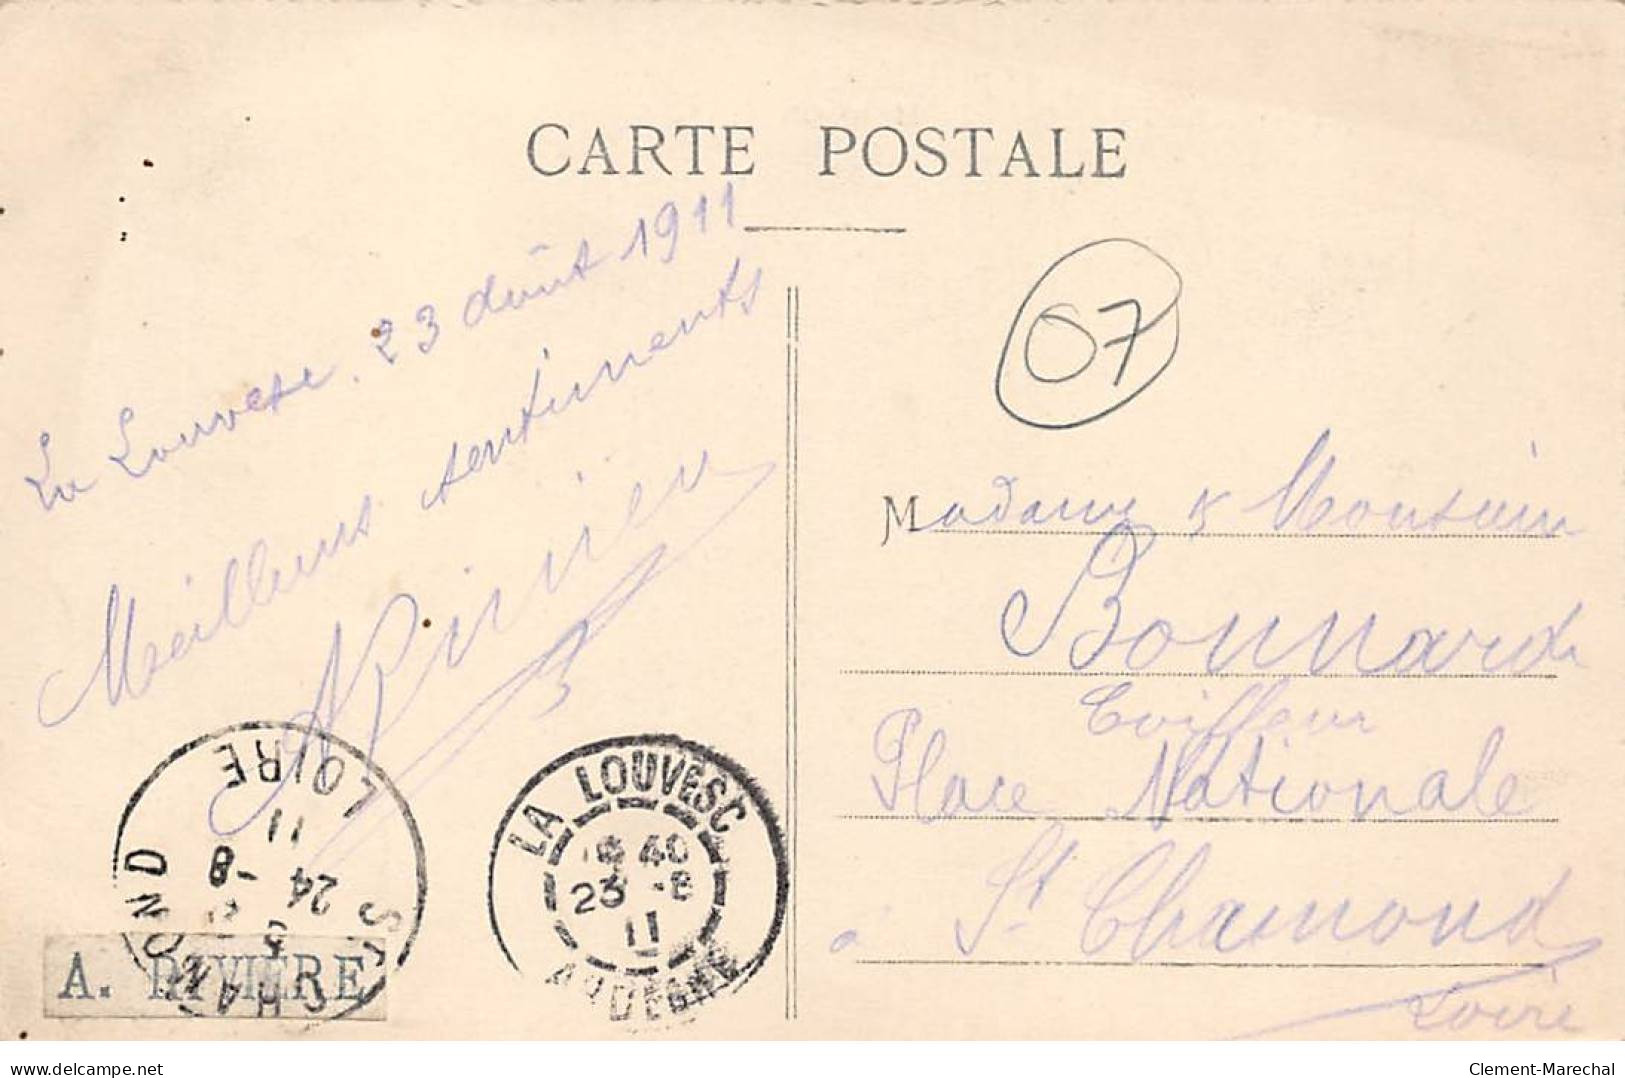 CARTE POSTALE
La Louvesc. 23 Août 1911
Meilleurs sentiments
ARivière
07
Madame & Monsieur
Bonnard
Coiffeur
Place Nationale
à St Chamond
Loire
ST CHAMOND LOIRE
24 -8
11
LA LOUVESC
40
23 -8
11
ARDECHE
A. RIVIÈRE
delcampe.net
Clement-Marechal